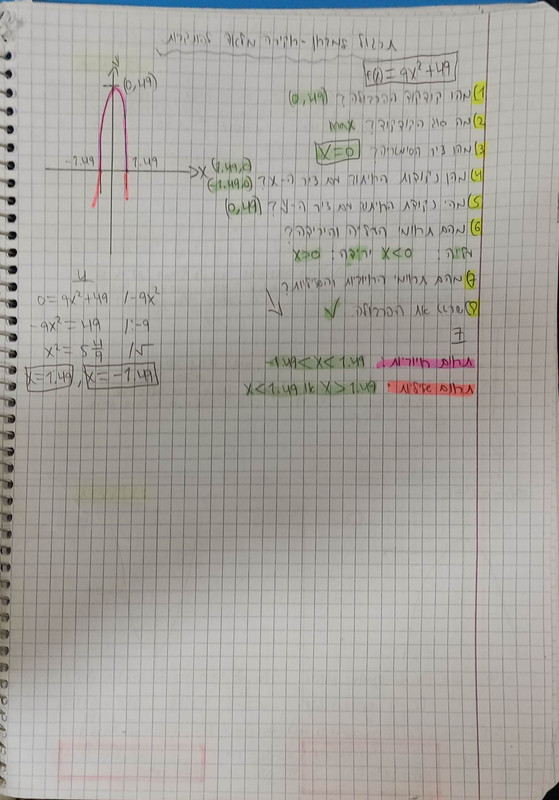 f(x) = 9x² + 49
1) מהו קודקוד הפרבולה? (0,49)
2) מהו סוג הקודקוד? max
3) מהו ציר הסימטריה? X=0
4) מהן נקודות החיתוך עם ציר ה-X? (1.49,0) (-1.49,0)
5) מהי נקודת החיתוך עם ציר ה-Y? (0,49)
6) מהם תחומי העלייה והירידה?
0>X ירידה: 0<X
7) מהם תחומי החיוביות והשליליות?
8) את הפרבולה.
7
תחום חיוביות
תחום שליליות
y
(0,49)
-1.49 1.49 X
4
0=9x²+49 /-9x²
-9x²=49 /:-9
x²=5 4/9 /√
x=1.49, x=-1.49